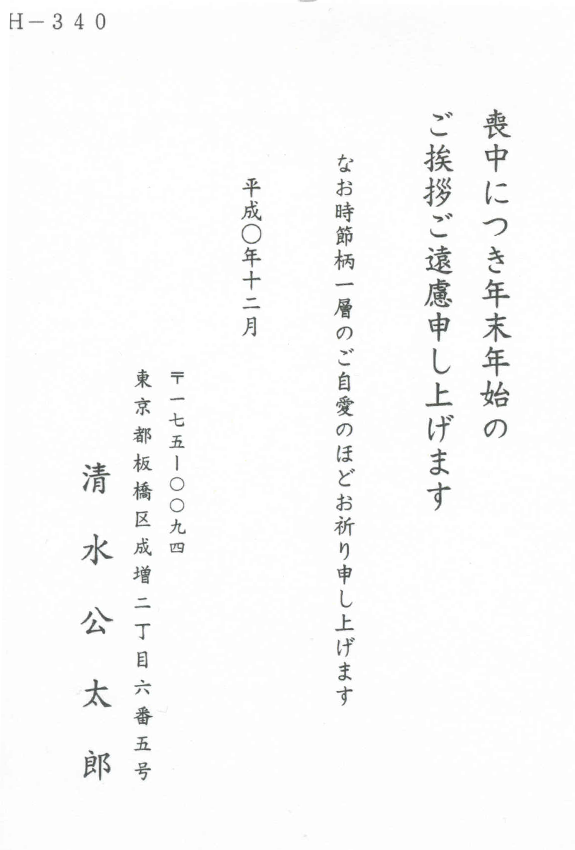 H－340
喪中につき年末年始の
ご挨拶ご遠慮申し上げます
なお時節柄一層のご自愛のほどお祈り申し上げます
平成〇年十二月
〒一七五ー〇〇九四
東京都板橋区成増二丁目六番五号
清水公太郎